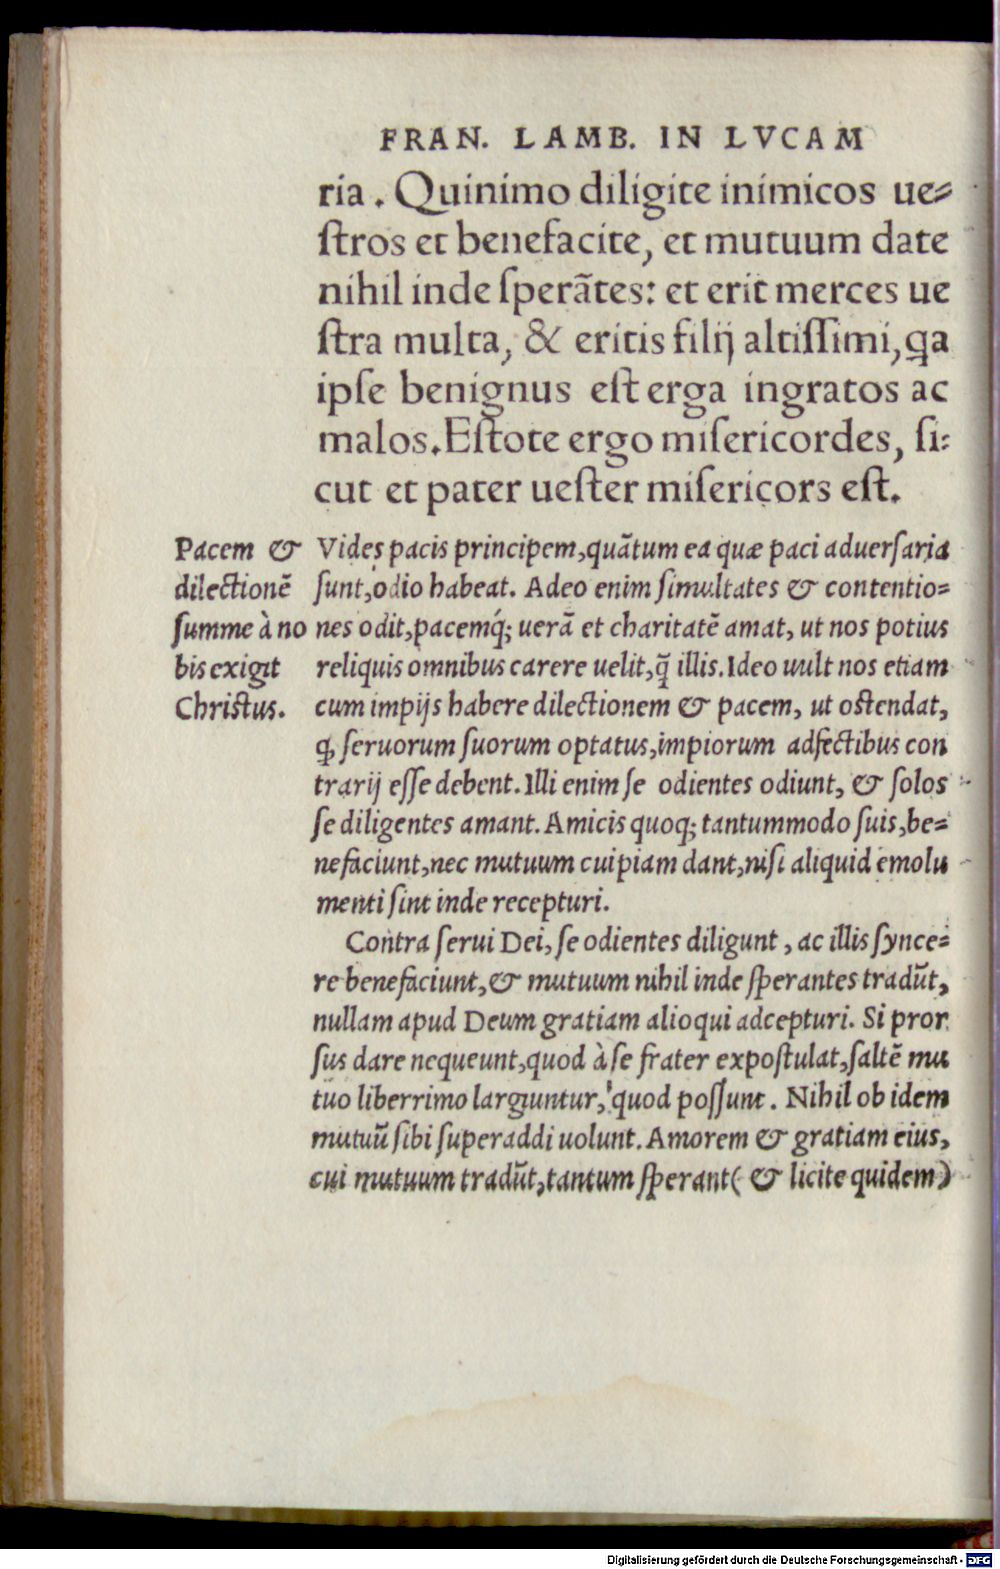 FRAN. LAMB. IN LVCAM
ria. Quinimo diligite inimicos ue⸗
ſtros et benefacite, et mutuum date
nihil inde ſperātes: et erit merces ue
ſtra multa, & eritis filij altiſſimi, ꝗa
ipſe benignus eſt erga ingratos ac
malos. Eſtote ergo miſericordes, ſi⸗
cut et pater ueſter miſericors eſt.
Pacem &
dilectionē
ſumme à no
bis exigit
Chriſtus.
Vides pacis principem, quātum ea quæ paci aduerſaria
ſunt, odio habeat. Adeo enim ſimultates & contentio⸗
nes odit, pacemq́; uerā et charitatē amat, ut nos potius
reliquis omnibus carere uelit, ꝗ̄ illis. Ideo uult nos etiam
cum impijs habere dilectionem & pacem, ut oſtendat,
ꝙ ſeruorum ſuorum optatus, impiorum adfectibus con
trarij eſſe debent. Illi enim ſe odientes odiunt, & ſolos
ſe diligentes amant. Amicis quoq; tantummodo ſuis, be⸗
nefaciunt, nec mutuum cuipiam dant, niſi aliquid emolu
menti ſint inde recepturi.
Contra ſerui Dei, ſe odientes diligunt, ac illis ſynce⸗
re benefaciunt, & mutuum nihil inde ſperantes tradūt,
nullam apud Deum gratiam alioqui adcepturi. Si pror
ſus dare nequeunt, quod à ſe frater expoſtulat, ſaltē mu
tuo liberrimo largiuntur, quod poſſunt. Nihil ob idem
mutuū ſibi ſuperaddi uolunt. Amorem & gratiam eius,
cui mutuum tradūt, tantum ſperant (& licite quidem)
Digitalisierung gefördert durch die Deutsche Forschungsgemeinschaft - DFG